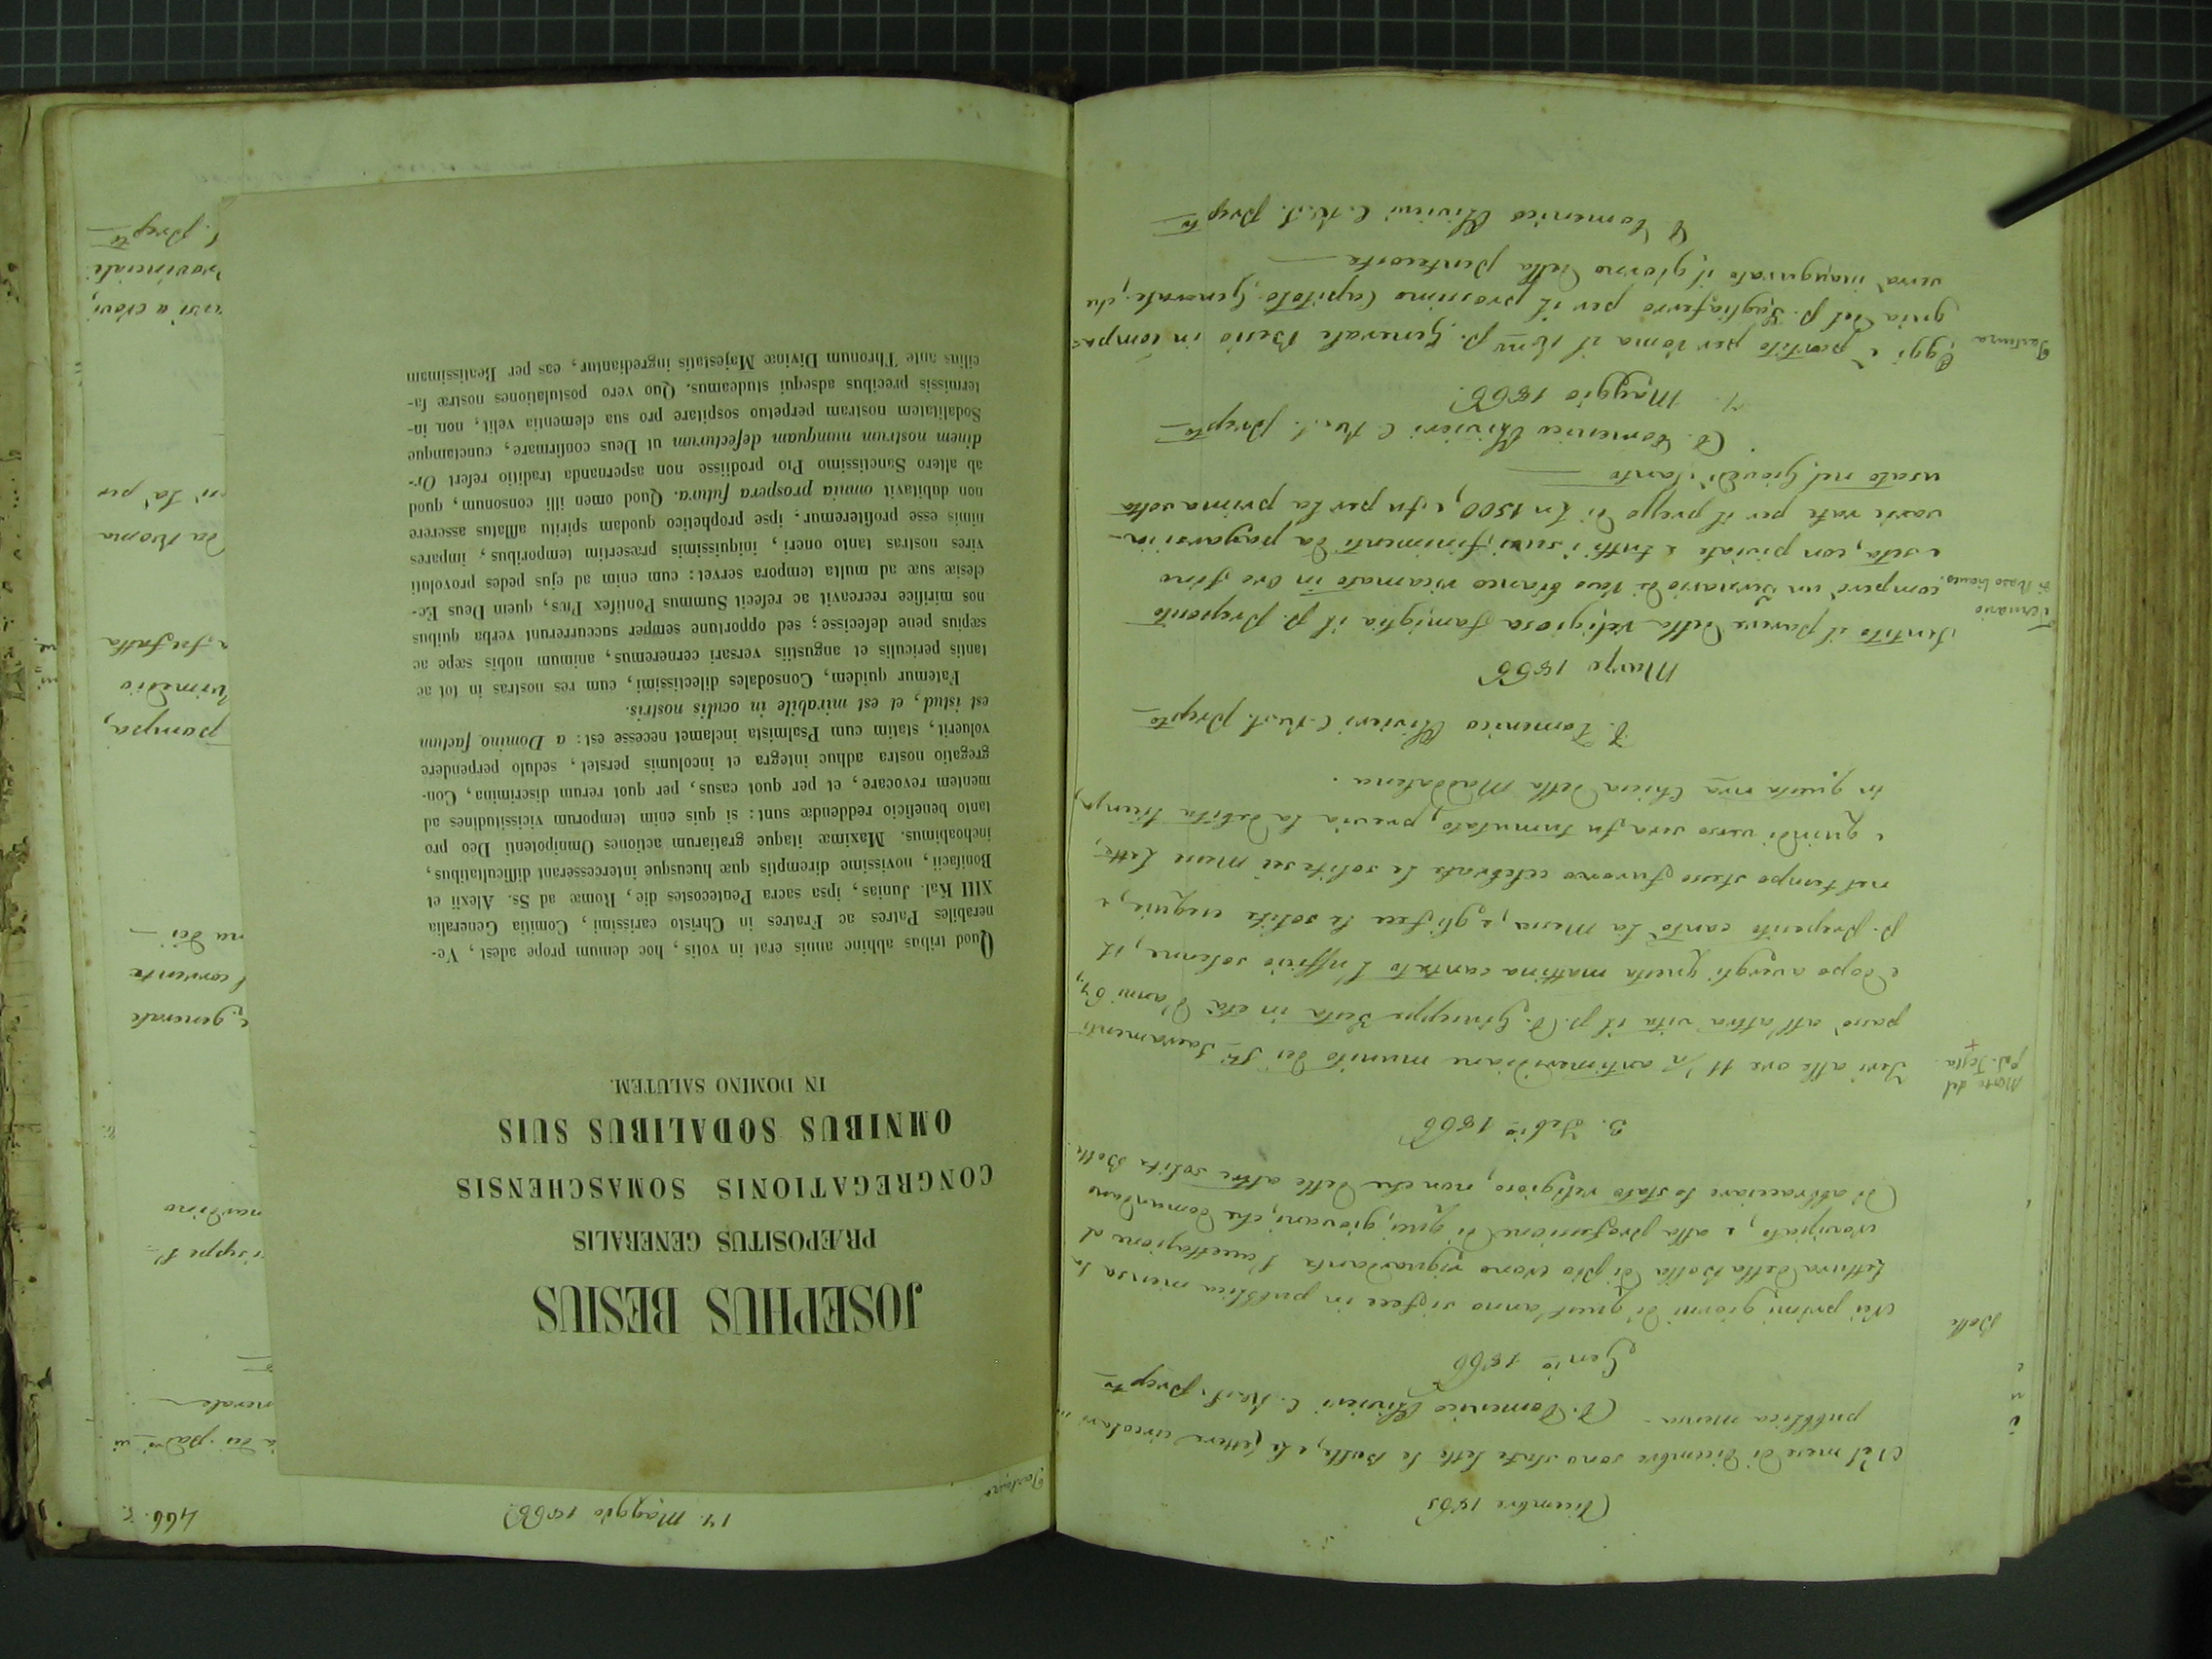 Dicembre 1865
Nel mese di Dicembre sono state lette le Bolle, e le lettere circolari in
pubblica mensa - D. Domenico Olivieri C.R.S. Prep.to
Gen.io 1866
Bolle
Nei primi giorni di quest'anno si fece in pubblica mensa la
lettura della Bolla di Pio Nono riguardante l'accettazione al
noviziato, e alla professione di quei giovani, che domandano
di abbracciare lo stato religioso, non che delle altre solite Bolle
3. Feb.io 1866
Morte del
pad. Testa
+
Ieri alle ore 11 1/2 antimeridiane munito dei SS. Sacramenti
passò all'altra vita il p. D. Giuseppe Testa in età d'anni 67,
e dopo avergli questa mattina cantato l'uffizio solenne, il
p. preposito cantò la messa, e gli fece le solite esequie, e
nel tempo stesso furono celebrate le solite sei messe lette,
e quindi verso sera fu tumulato, previa la debita licenza,
in questa Chiesa della Maddalena.
D. Domenico Olivieri C.R.S. Prep.to
Marzo 1866
Ternario
di raso bianco.
Sentito il parere della religiosa famiglia il p. Preposito
comperò un Ternario di raso bianco ricamato in oro fino
e seta, con piviale e tutti i suoi finimenti da pagarsi in
varie rate per il prezzo di Ln 1500, e fu per la prima volta
usato nel Giovedì Santo
D. Domenico Olivieri C.R.S. Prep.to
7. Maggio 1866.
Partenza
Oggi è partito per Roma il Rmo P. Generale Besio in compa=
gnia del P. Tagliaferro per il prossimo Capitolo Generale, che
verrà inaugurato il giorno della Pentecoste
D Domenico Olivieri C.R.S. Prep.to
466.
17. Maggio 1866.
JOSEPHUS BESIUS
PRÆPOSITUS GENERALIS
CONGREGATIONIS SOMASCHENSIS
OMNIBUS SODALIBUS SUIS
IN DOMINO SALUTEM.
Quod tribus abhinc annis erat in votis, hoc demum prope adest, Ve-
nerabiles Patres ac Fratres in Christo carissimi, Comitia Generalia
XIII Kal. Junias, ipsa sacra Pentecostes die, Romæ ad Ss. Alexii et
Bonifacii, novissime diremptis quæ hucusque intercesserant difficultatibus,
inchoabimus. Maximæ itaque gratiarum actiones Omnipotenti Deo pro
tanto beneficio reddendæ sunt: si quis enim temporum vicissitudines ad
mentem revocare, et per quot casus, per quot rerum discrimina, Con-
gregatio nostra adhuc integra et incolumis perstet, sedulo perpendere
voluerit, statim cum Psalmista inclamet necesse est: a Domino factum
est istud, et est mirabile in oculis nostris.
Fatemur quidem, Consodales dilectissimi, cum res nostras in tot ac
tantis periculis et angustiis versari cerneremus, animum nobis sæpe ac
sæpius pene defecisse; sed opportune semper succurrerunt verba quibus
nos mirifice recreavit ac refecit Summus Pontifex Pius, quem Deus Ec-
clesiæ suæ ad multa tempora servet: cum enim ad ejus pedes provoluti
vires nostras tanto oneri, iniquissimis præsertim temporibus, impares
nimis esse profiteremur; ipse prophetico quodam spiritu afflatus asserere
non dubitavit omnia prospera futura. Quod omen illi consonum, quod
ab altero Sanctissimo Pio prodiisse non aspernanda traditio refert Or-
dinem nostrum numquam defecturum ut Deus confirmare, cunctamque
Sodalitatem nostram perpetuo sospitare pro sua clementia velit, non in-
termissis precibus adsequi studeamus. Quo vero postulationes nostræ fa-
cilius ante Thronum Divinæ Majestatis ingrediantur, eas per Beatissimam
nerale
nardino
generale
convento
na dei
pompa,
fu fatta
da Roma
Provinciale